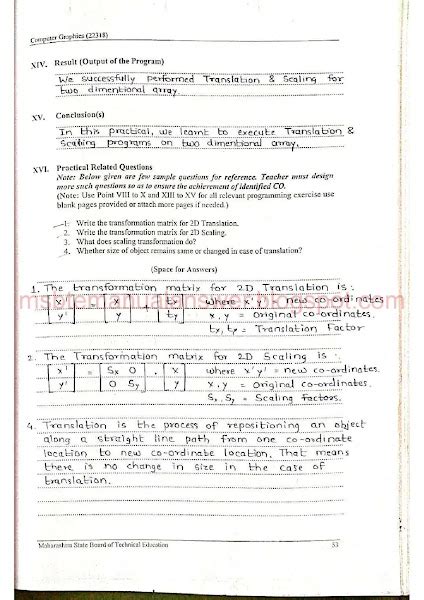 Computer Graphics (22318)
XIV. Result (Output of the Program)
We successfully performed Translation & Scaling for
two dimentional array.
XV. Conclusion(s)
In this practical, we learnt to execute Translation &
Scaling programs on two dimentional array.
XVI. Practical Related Questions
Note: Below given are few sample questions for reference. Teacher must design
more such questions so as to ensure the achievement of identified CO.
(Note: Use Point VIII to X and XIII to XV for all relevant programming exercise use
blank pages provided or attach more pages if needed.)
1. Write the transformation matrix for 2D Translation.
2. Write the transformation matrix for 2D Scaling.
3. What does scaling transformation do?
4. Whether size of object remains same or changed in case of translation?
(Space for Answers)
1. The transformation matrix for 2D Translation is :
msbtemanualanswer.blogspot.com
x' = x + tx where x'y' = new co-ordinates
y' y ty x, y = Original co-ordinates.
tx, ty = Translation Factor
2. The Transformation matrix for 2D Scaling is :
x' = Sx 0 . x where x'y' = new co-ordinates.
y' 0 Sy y x, y = Original co-ordinates.
Sx, Sy = Scaling factors.
4. Translation is the process of repositioning an object
along a straight line path from one co-ordinate
location to new co-ordinate location. That means
there is no change in size in the case of
translation.
Maharashtra State Board of Technical Education 53